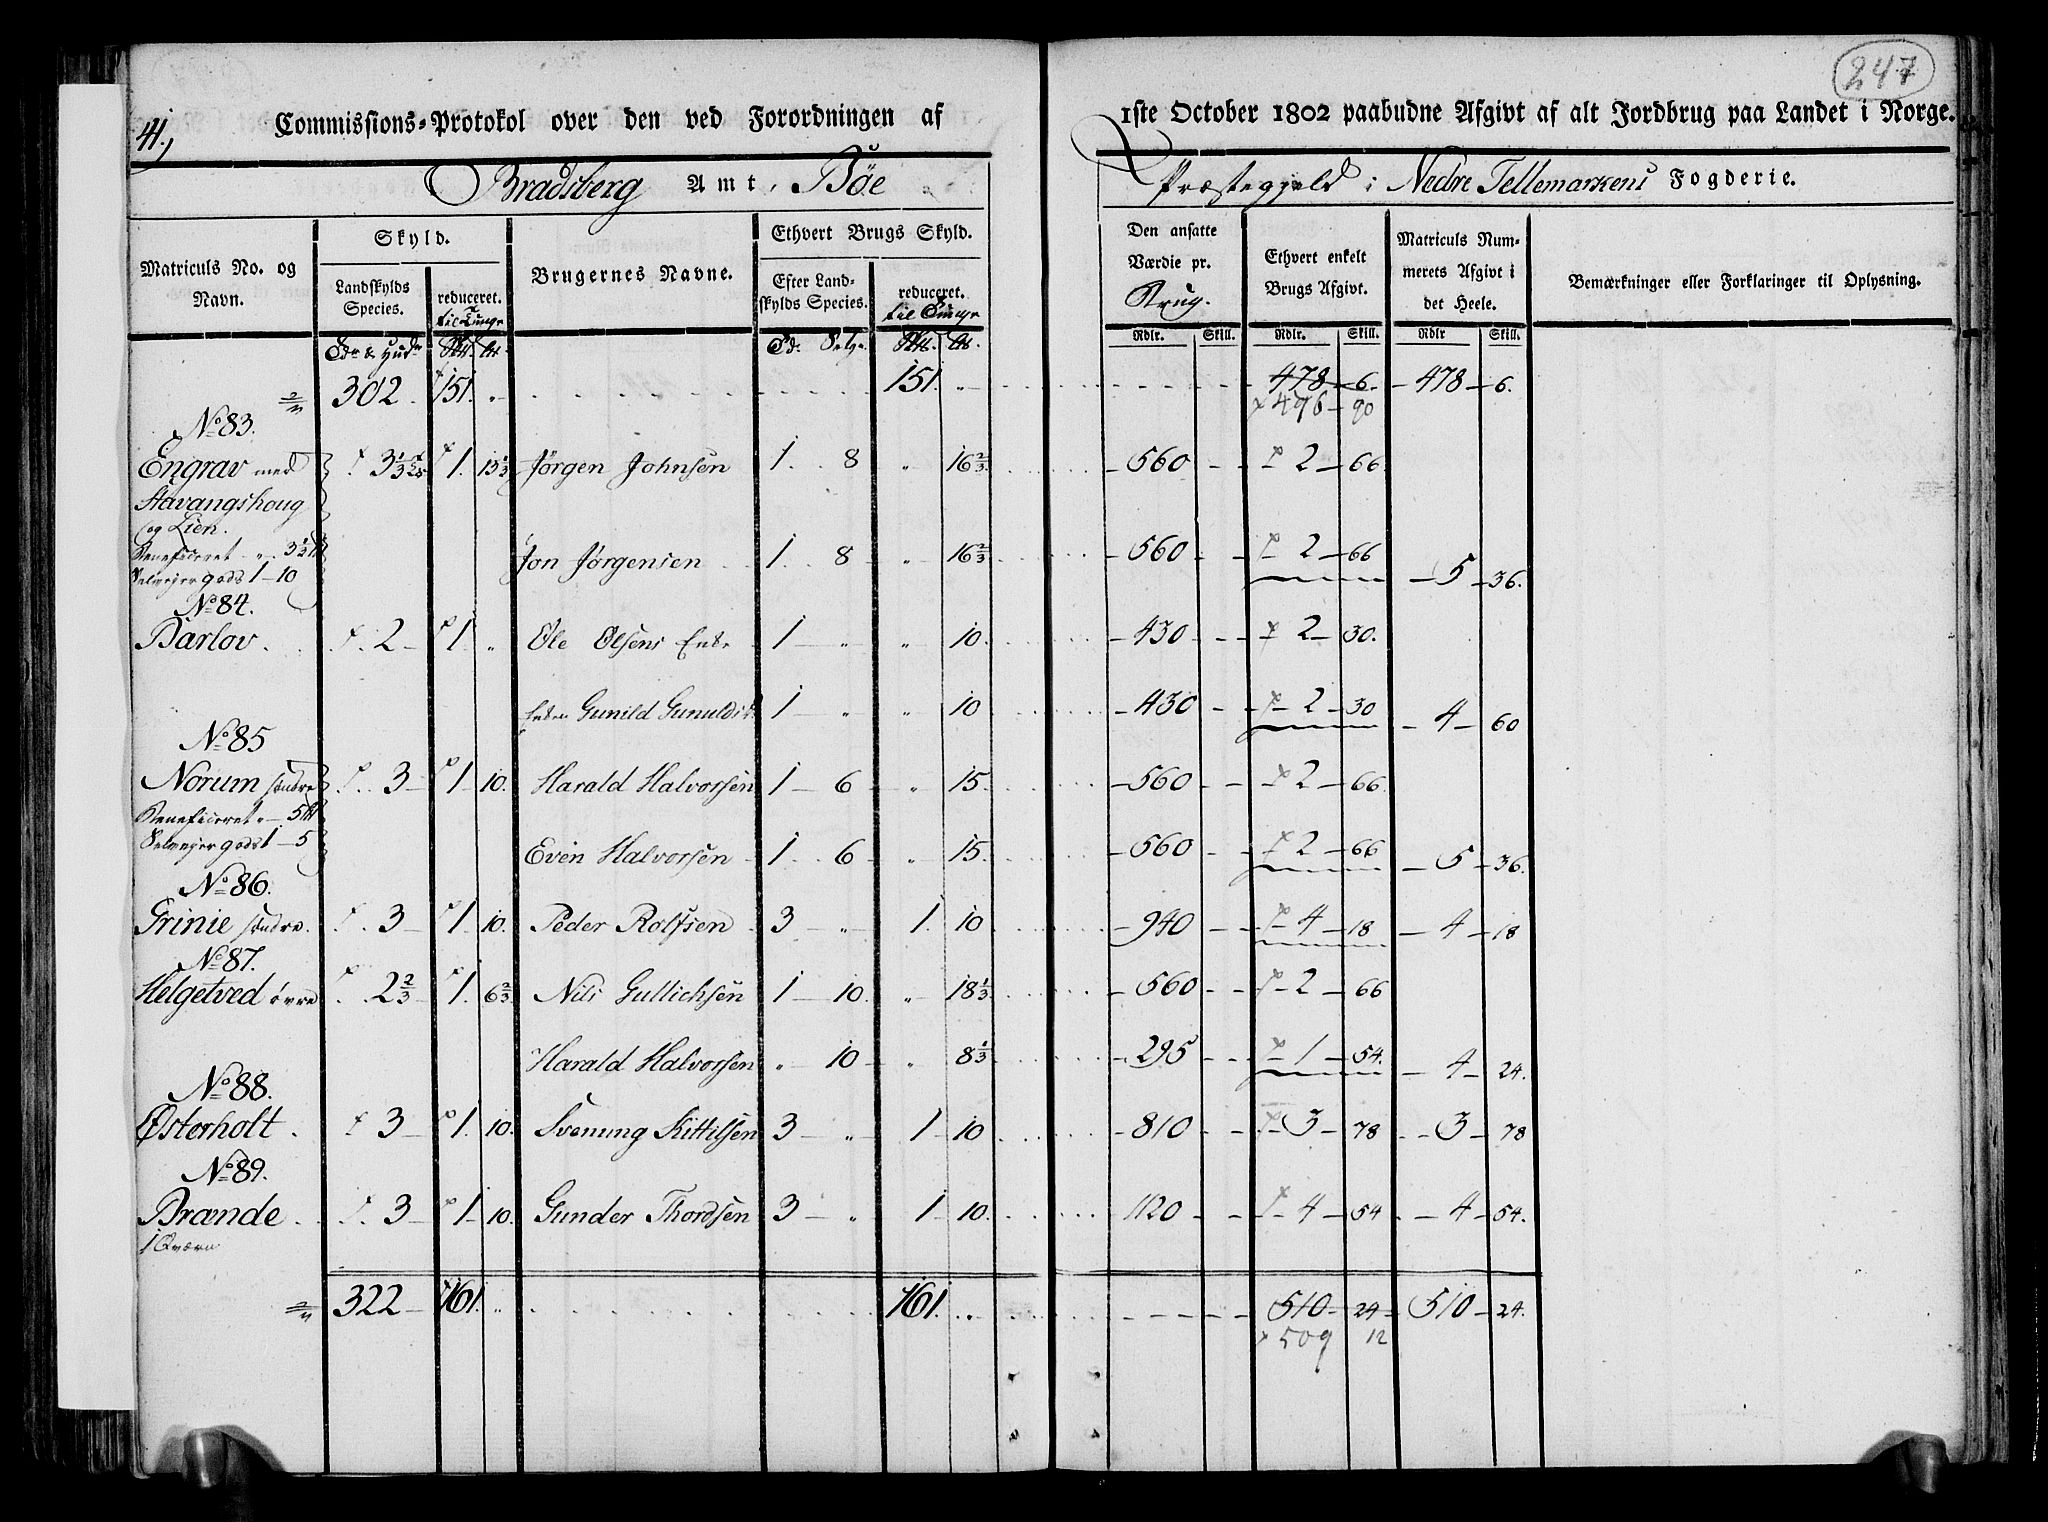 247
41.
Commissions-Protokol over den ved Forordningen af 1ste October 1802 paabudne Afgivt af alt Jordbrug paa Landet i Norge.
Bradsberg Amt, Bøe Præstegjeld i Nedre Tellemarkens Fogderie.
Matriculs No. og Navn.
Skyld.
Landskylds Species.
reduceret. til Tunge
Brugernes Navne.
Ethvert Brugs Skyld.
Efter Landskylds Species.
reduceret. til Tunge
Den ansatte Værdie pr. Brug.
Ethvert enkelt Brugs Afgivt.
Matriculs Nummerets Afgivt i det Heele.
Bemærkninger eller Forklaringer til Oplysning.
Rdlr. Skill. Rdlr. Skill. Rdlr Skill.
302 151 " 151 " 478 6. 478 6.
496 90
No 83.
Engrav med 3 1/3 1. 13 1/3 Jørgen Johnsen 1. 8 " 16 2/3 560 2 66
Aavangshoug
og Lien.
Beneficeret " 3 1/3 Jon Jørgensen 1. 8 " 16 2/3 560 2 66 5 36.
Selvejergods 1 10
No 84.
Barlov 2 1 " Ole Olsens Enke 1 " " 10. 430 2 30.
Enken Gunild 1 " " 10 430 2 30 4 60
No 85
Norum søndre 3 1 10. Harald Halvorsen 1 6 " 15. 560 2 66
Beneficeret " 5
Selvejergods 1 5 Even Halvorsen 1 6 " 15. 560 2 66 5 36.
No 86.
Grinie søndre. 3 1 10. Peder Rolfsen 3 " 1. 10 940 4 18 4 18
No 87.
Helgetved øvre 2 2/3 1. 6 2/3 Nils Gullichsen 1 10. " 18 1/3 560 2 66
Harald Halvorsen " 10 " 8 1/3 295 1 54. 4 24.
No 88.
Østerholt 3 1. 10. Svenung Kittilsen 3 " 1 10 810 3 78 3 78
No 89.
Brænde 3 1 10. Gunder Thordsen 3 " 1 10. 1120 4 54 4 54.
1 Qværn
322 161 " 161. 510 24 510 24.
509 12